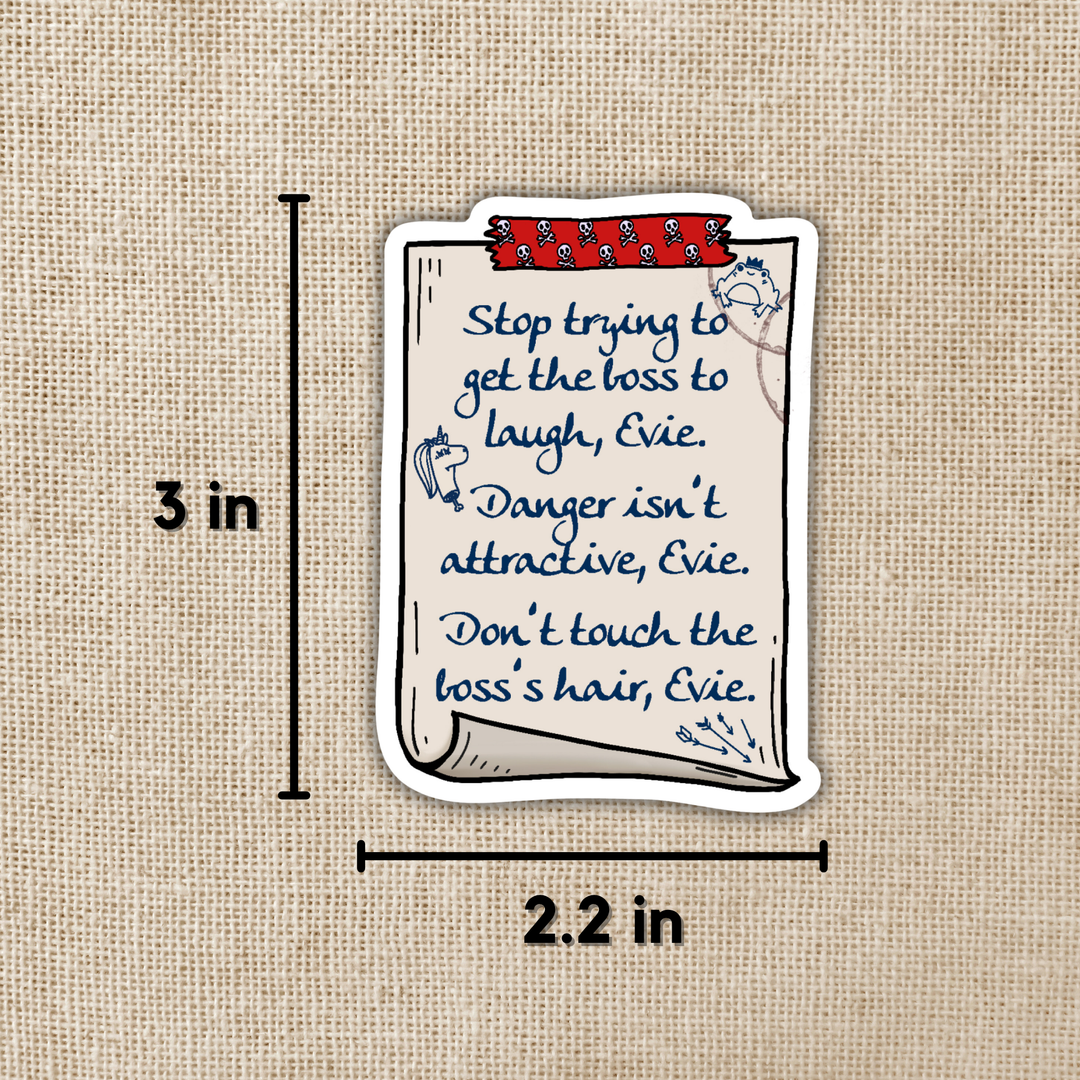 Stop trying to
get the boss to
laugh, Evie.
Danger isn't
attractive, Evie.
Don't touch the
boss's hair, Evie.
3 in
2.2 in